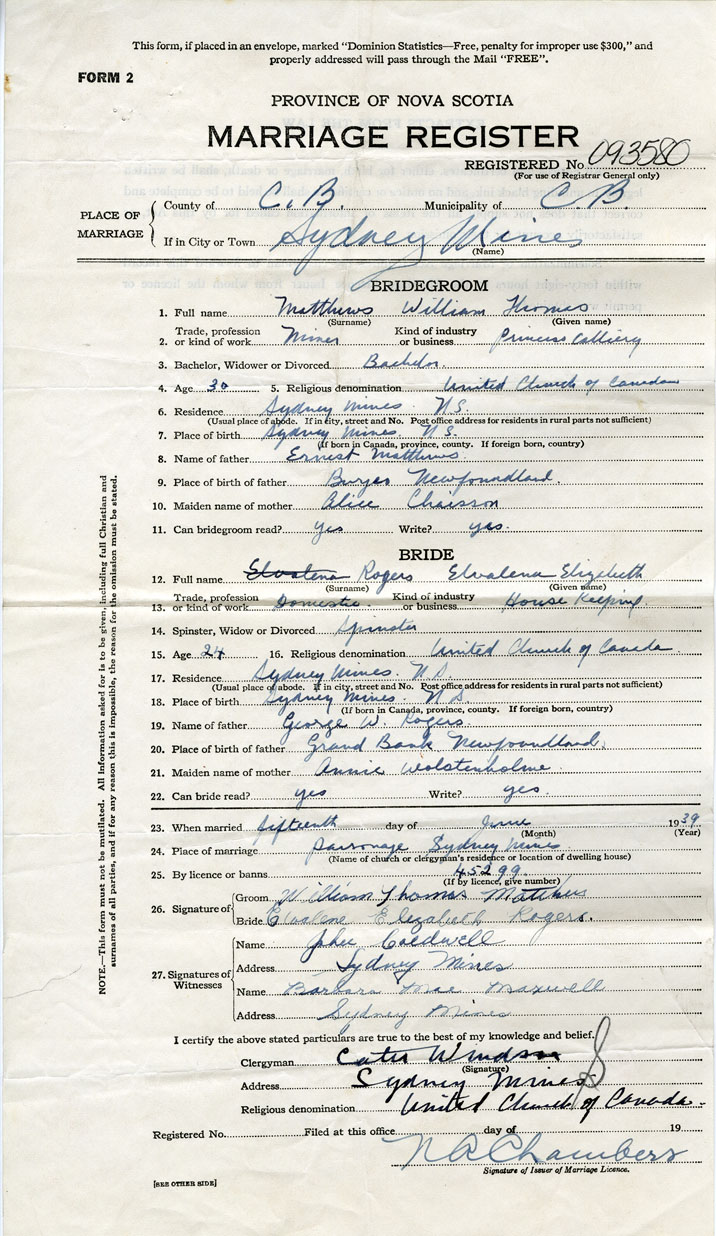 This form, if placed in an envelope, marked "Dominion Statistics—Free, penalty for improper use $300," and
properly addressed will pass through the Mail "FREE".
FORM 2
PROVINCE OF NOVA SCOTIA
MARRIAGE REGISTER
REGISTERED No. 093580
(For use of Registrar General only)
PLACE OF MARRIAGE
County of C. B. Municipality of C B
If in City or Town Sydney Mines
(Name)
BRIDEGROOM
1. Full name Matthews William Thomas
(Surname) (Given name)
2. Trade, profession or kind of work Miner Kind of industry or business Princess Colliery
3. Bachelor, Widower or Divorced Bachelor.
4. Age 30 5. Religious denomination United Church of Canada
6. Residence Sydney Mines N.S.
(Usual place of abode. If in city, street and No. Post office address for residents in rural parts not sufficient)
7. Place of birth Sydney Mines. N.S.
(If born in Canada, province, county. If foreign born, country)
8. Name of father Ernest Matthews.
9. Place of birth of father Newfoundland.
10. Maiden name of mother Alice Chaisson
11. Can bridegroom read? yes Write? yes.
BRIDE
12. Full name Elvalena Rogers Elvalena Elizebeth
(Surname) (Given name)
13. Trade, profession or kind of work Domestic. Kind of industry or business House Keeping.
14. Spinster, Widow or Divorced Spinster
15. Age 24 16. Religious denomination United Church of Canada
17. Residence Sydney Mines. N.S.
(Usual place of abode. If in city, street and No. Post office address for residents in rural parts not sufficient)
18. Place of birth Sydney Mines. N.S
(If born in Canada, province, county. If foreign born, country)
19. Name of father George W. Rogers.
20. Place of birth of father Grand Bank Newfoundland.
21. Maiden name of mother Annie Wolstenholme
22. Can bride read? yes Write? yes.
23. When married fifteenth day of June 1939
(Month) (Year)
24. Place of marriage parsonage Sydney Mines
(Name of church or clergyman's residence or location of dwelling house)
25. By licence or banns 45299.
(If by licence, give number)
26. Signature of
Groom William Thomas Matthews
Bride Elvalene Elizabeth Rogers.
27. Signatures of Witnesses
Name John Coldwell
Address Sydney Mines
Name Barbara Mae Maxwell
Address Sydney Mines
I certify the above stated particulars are true to the best of my knowledge and belief.
Clergyman Cater Windsor
(Signature)
Address Sydney Mines
Religious denomination United Church of Canada.
Registered No. Filed at this office day of 19
N A Chambers
Signature of Issuer of Marriage Licence.
[SEE OTHER SIDE]
NOTE.—This form must not be mutilated. All information asked for is to be given, including full Christian and
surnames of all parties, and if for any reason this is impossible, the reason for the omission must be stated.